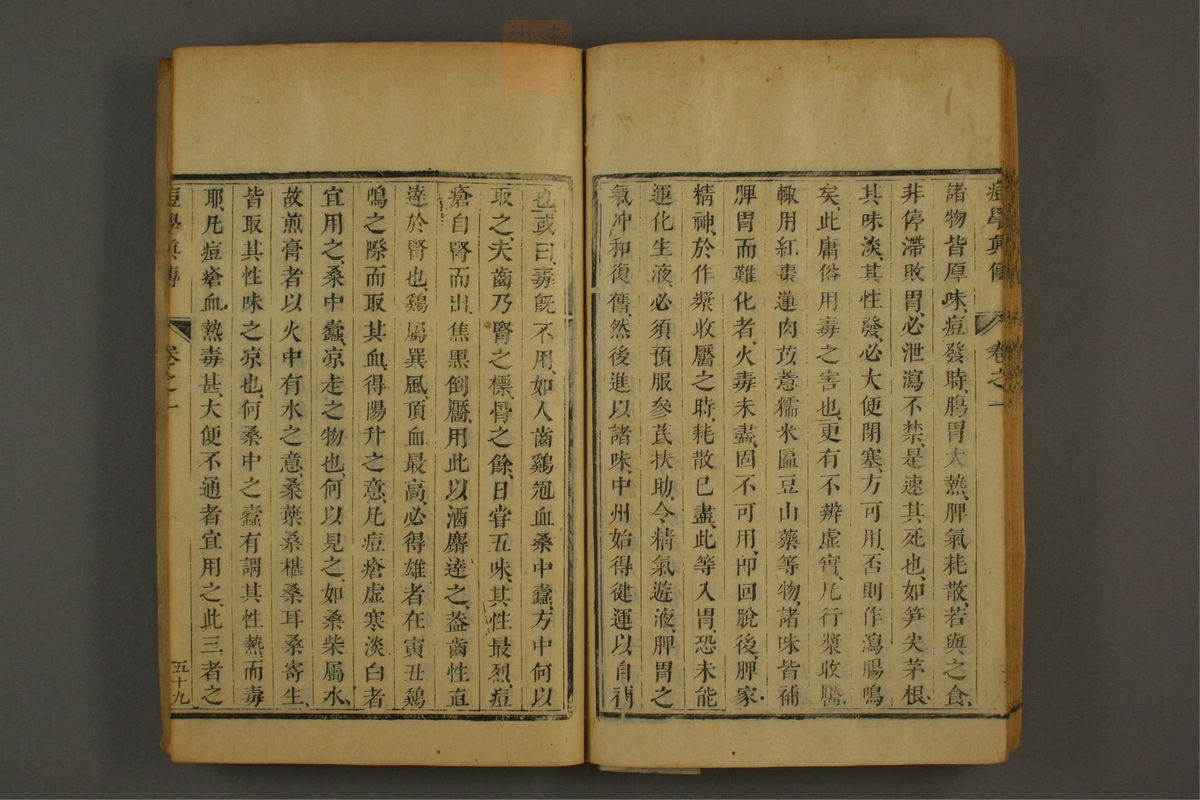 痘學真傳 卷之一
諸物皆厚味、痘發時、腸胃大熱、脾氣耗散、若與之食、
非停滯敗胃、必泄瀉不禁、是速其死也、如笋尖茅根、
其味淡、其性發、必大便閉塞、方可用、否則作瀉腸鳴
矣、此庸俗用毒之害也、更有不辨虛實、凡行漿收靨、
輒用紅棗蓮肉苡薏糯米匾豆山藥等物、諸味皆補
脾胃而難化者、火毒未盡、固不可用、卽回脫後、脾家
精神、於作漿收靨之時、耗散已盡、此等入胃恐未能
運化生液、必須預服參芪扶助、令精氣遊液、脾胃之
氣冲和復舊、然後進以諸味、中州始得健運以自補
也、或曰、毒旣不用、如人齒鷄冠血桑中蠹、方中何以
取之、夫齒乃腎之標、骨之餘、日嘗五味、其性最烈、痘
瘡自腎而出、焦黑倒靨、用此以酒麝達之、蓋齒性直
達於腎也、鷄屬巽風、頂血最高、必得雄者在寅丑鷄
鳴之際而取其血、得陽升之意、凡痘瘡虛寒淡白者
宜用之、桑中蠹、凉走之物也、何以見之、如桑柴屬水、
故煎膏者以火中有水之意、桑葉桑椹桑耳桑寄生、
皆取其性味之凉也、何桑中之蠹有謂其性熱而毒
耶、凡痘瘡血熱毒甚、大便不通者宜用之、此三者之
痘學真傳 卷之一 五十九